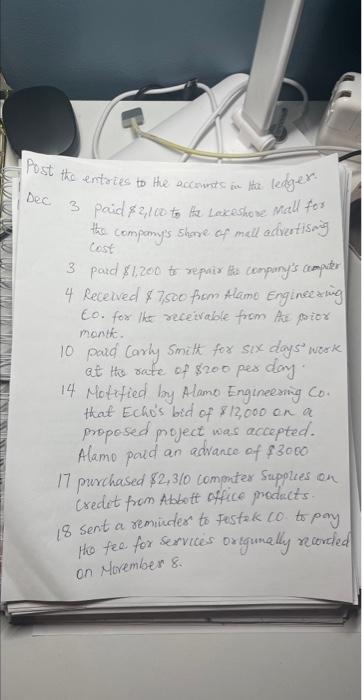 Post the entries to the accounts in the ledger.
Dec 3 paid $2,100 to the Lakeshore Mall for
the company's share of mall advertising
Cost
3 paid $1,200 to repair the company's computer
4 Received $7,500 from Alamo Engineering
Co. for the receivable from the prior
month.
10 paid Carly Smith for six days' work
at the rate of $200 per day.
14 Notified by Alamo Engineering Co.
that Echo's bid of $12,000 on a
proposed project was accepted.
Alamo paid an advance of $3000
17 purchased $2,310 computer Supplies on
Credit from Abbott office products.
18 Sent a reminder to Fostek CO. to pay
the fee for services origunally recorded
on November 8.